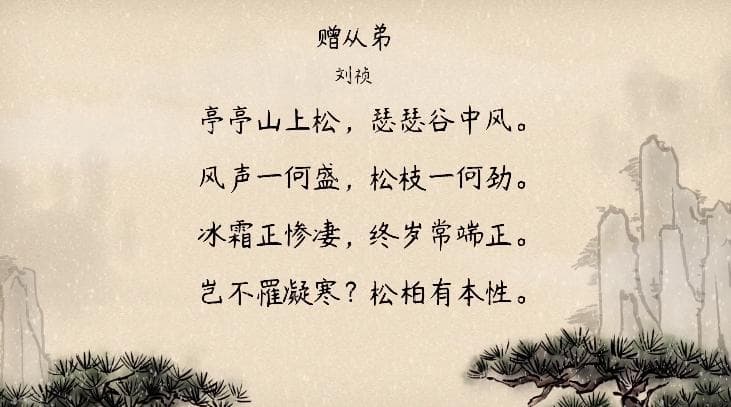 赠从弟
刘祯
亭亭山上松，瑟瑟谷中风。
风声一何盛，松枝一何劲。
冰霜正惨凄，终岁常端正。
岂不罹凝寒？松柏有本性。